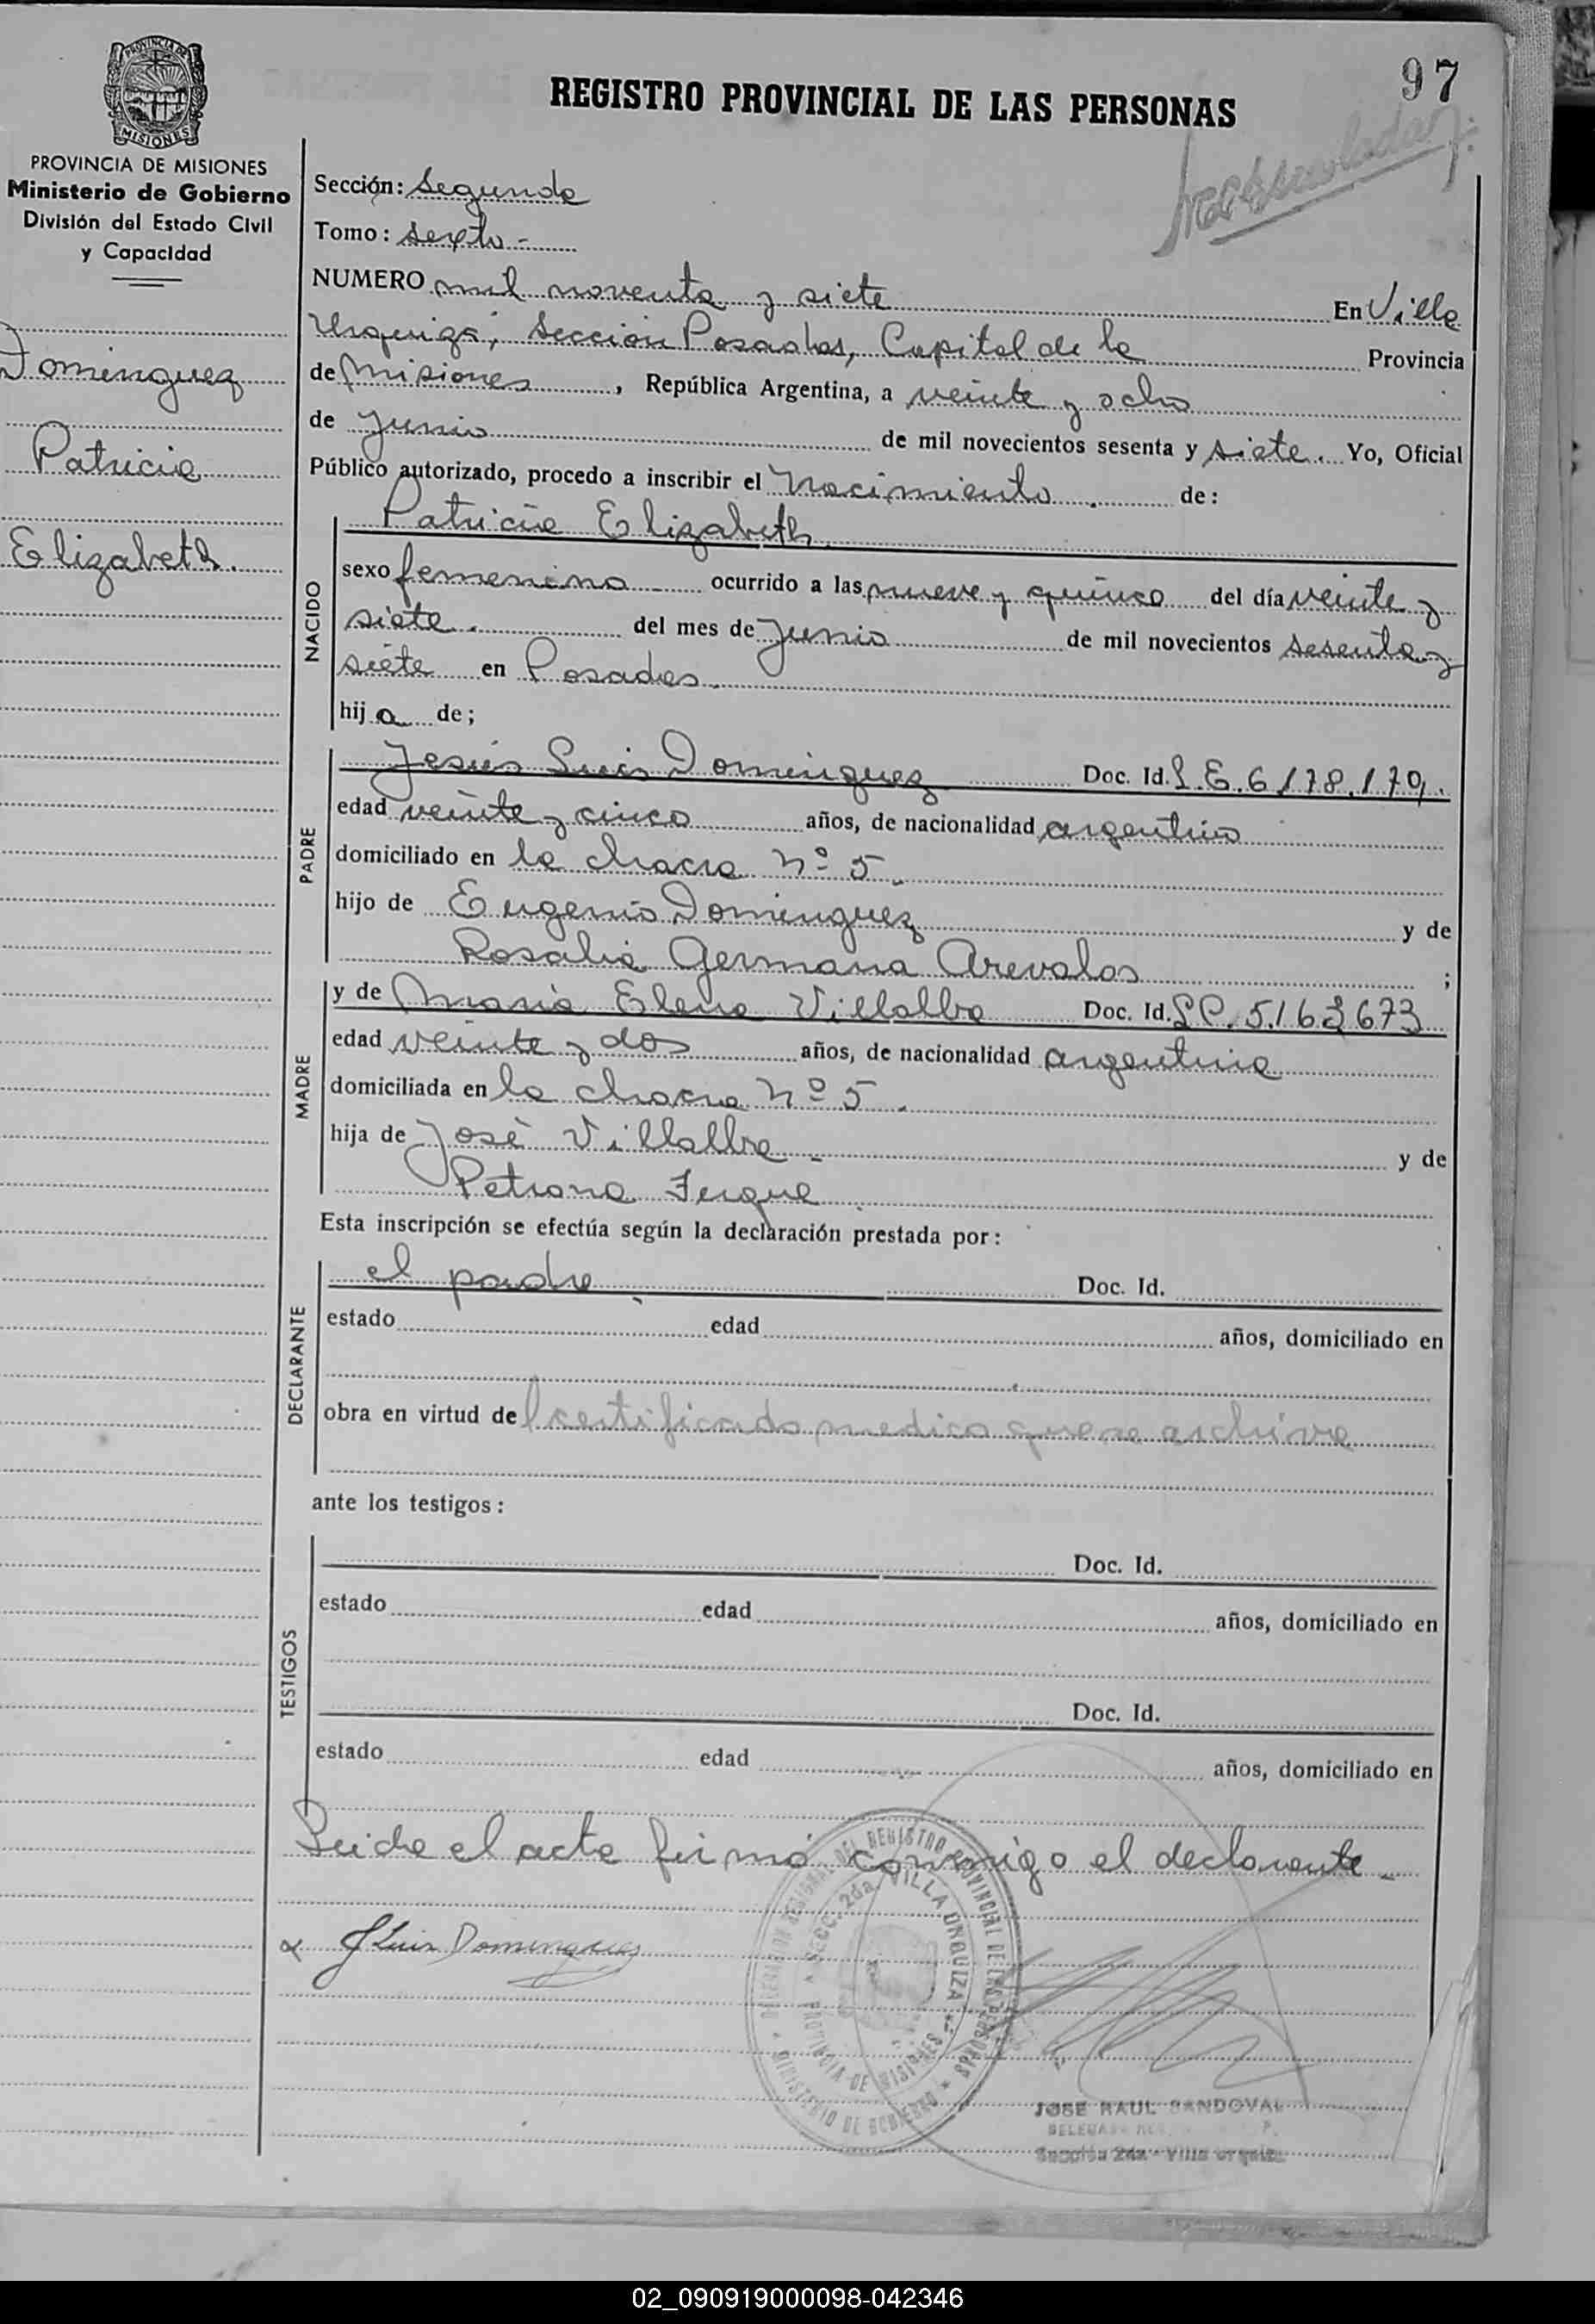 97
PROVINCIA DE
MISIONES
PROVINCIA DE MISIONES
Ministerio de Gobierno
División del Estado Civil
y Capacidad
Dominguez
Patricia
Elizabeth.
REGISTRO PROVINCIAL DE LAS PERSONAS
Sección: Segunda
Tomo: sexto -
NUMERO mil noventa y siete En Villa
Urquiza, Sección Posadas, Capital de la Provincia
de Misiones, República Argentina, a veinte y ocho
de Junio de mil novecientos sesenta y siete. Yo, Oficial
Público autorizado, procedo a inscribir el Nacimiento de:
NACIDO
Patricia Elizabeth
sexo femenino ocurrido a las nueve y quince del día veinte y
siete. del mes de Junio de mil novecientos sesenta y
siete en Posadas.
hij a de;
PADRE
Jesús Luis Dominguez Doc. Id. L.E. 6178.179.
edad veinte y cinco años, de nacionalidad argentino
domiciliado en la chacra Nº 5.
hijo de Eugenio Dominguez y de
Rosalia Germana Arevalos ;
MADRE
y de Maria Elena Villalba Doc. Id. LC. 5.163673
edad veinte y dos años, de nacionalidad argentina
domiciliada en la chacra Nº 5.
hija de José Villalba - y de
Petrona
Esta inscripción se efectúa según la declaración prestada por:
DECLARANTE
el padre Doc. Id.
estado edad años, domiciliado en
obra en virtud del certificado medico que se archiva
ante los testigos:
TESTIGOS
Doc. Id.
estado edad años, domiciliado en
Doc. Id.
estado edad años, domiciliado en
Leida el acta firmó conmigo el declarante -
J Luis Dominguez
REGIONAL DEL REGISTRO PROVINCIAL DE LAS PERSONAS
SECC. 2da. VILLA URQUIZA
PROVINCIA DE MISIONES
MINISTERIO DE GOBIERNO
JOSE RAUL SANDOVAL
Sección 2da - Villa Urquiza
02_090919000098-042346